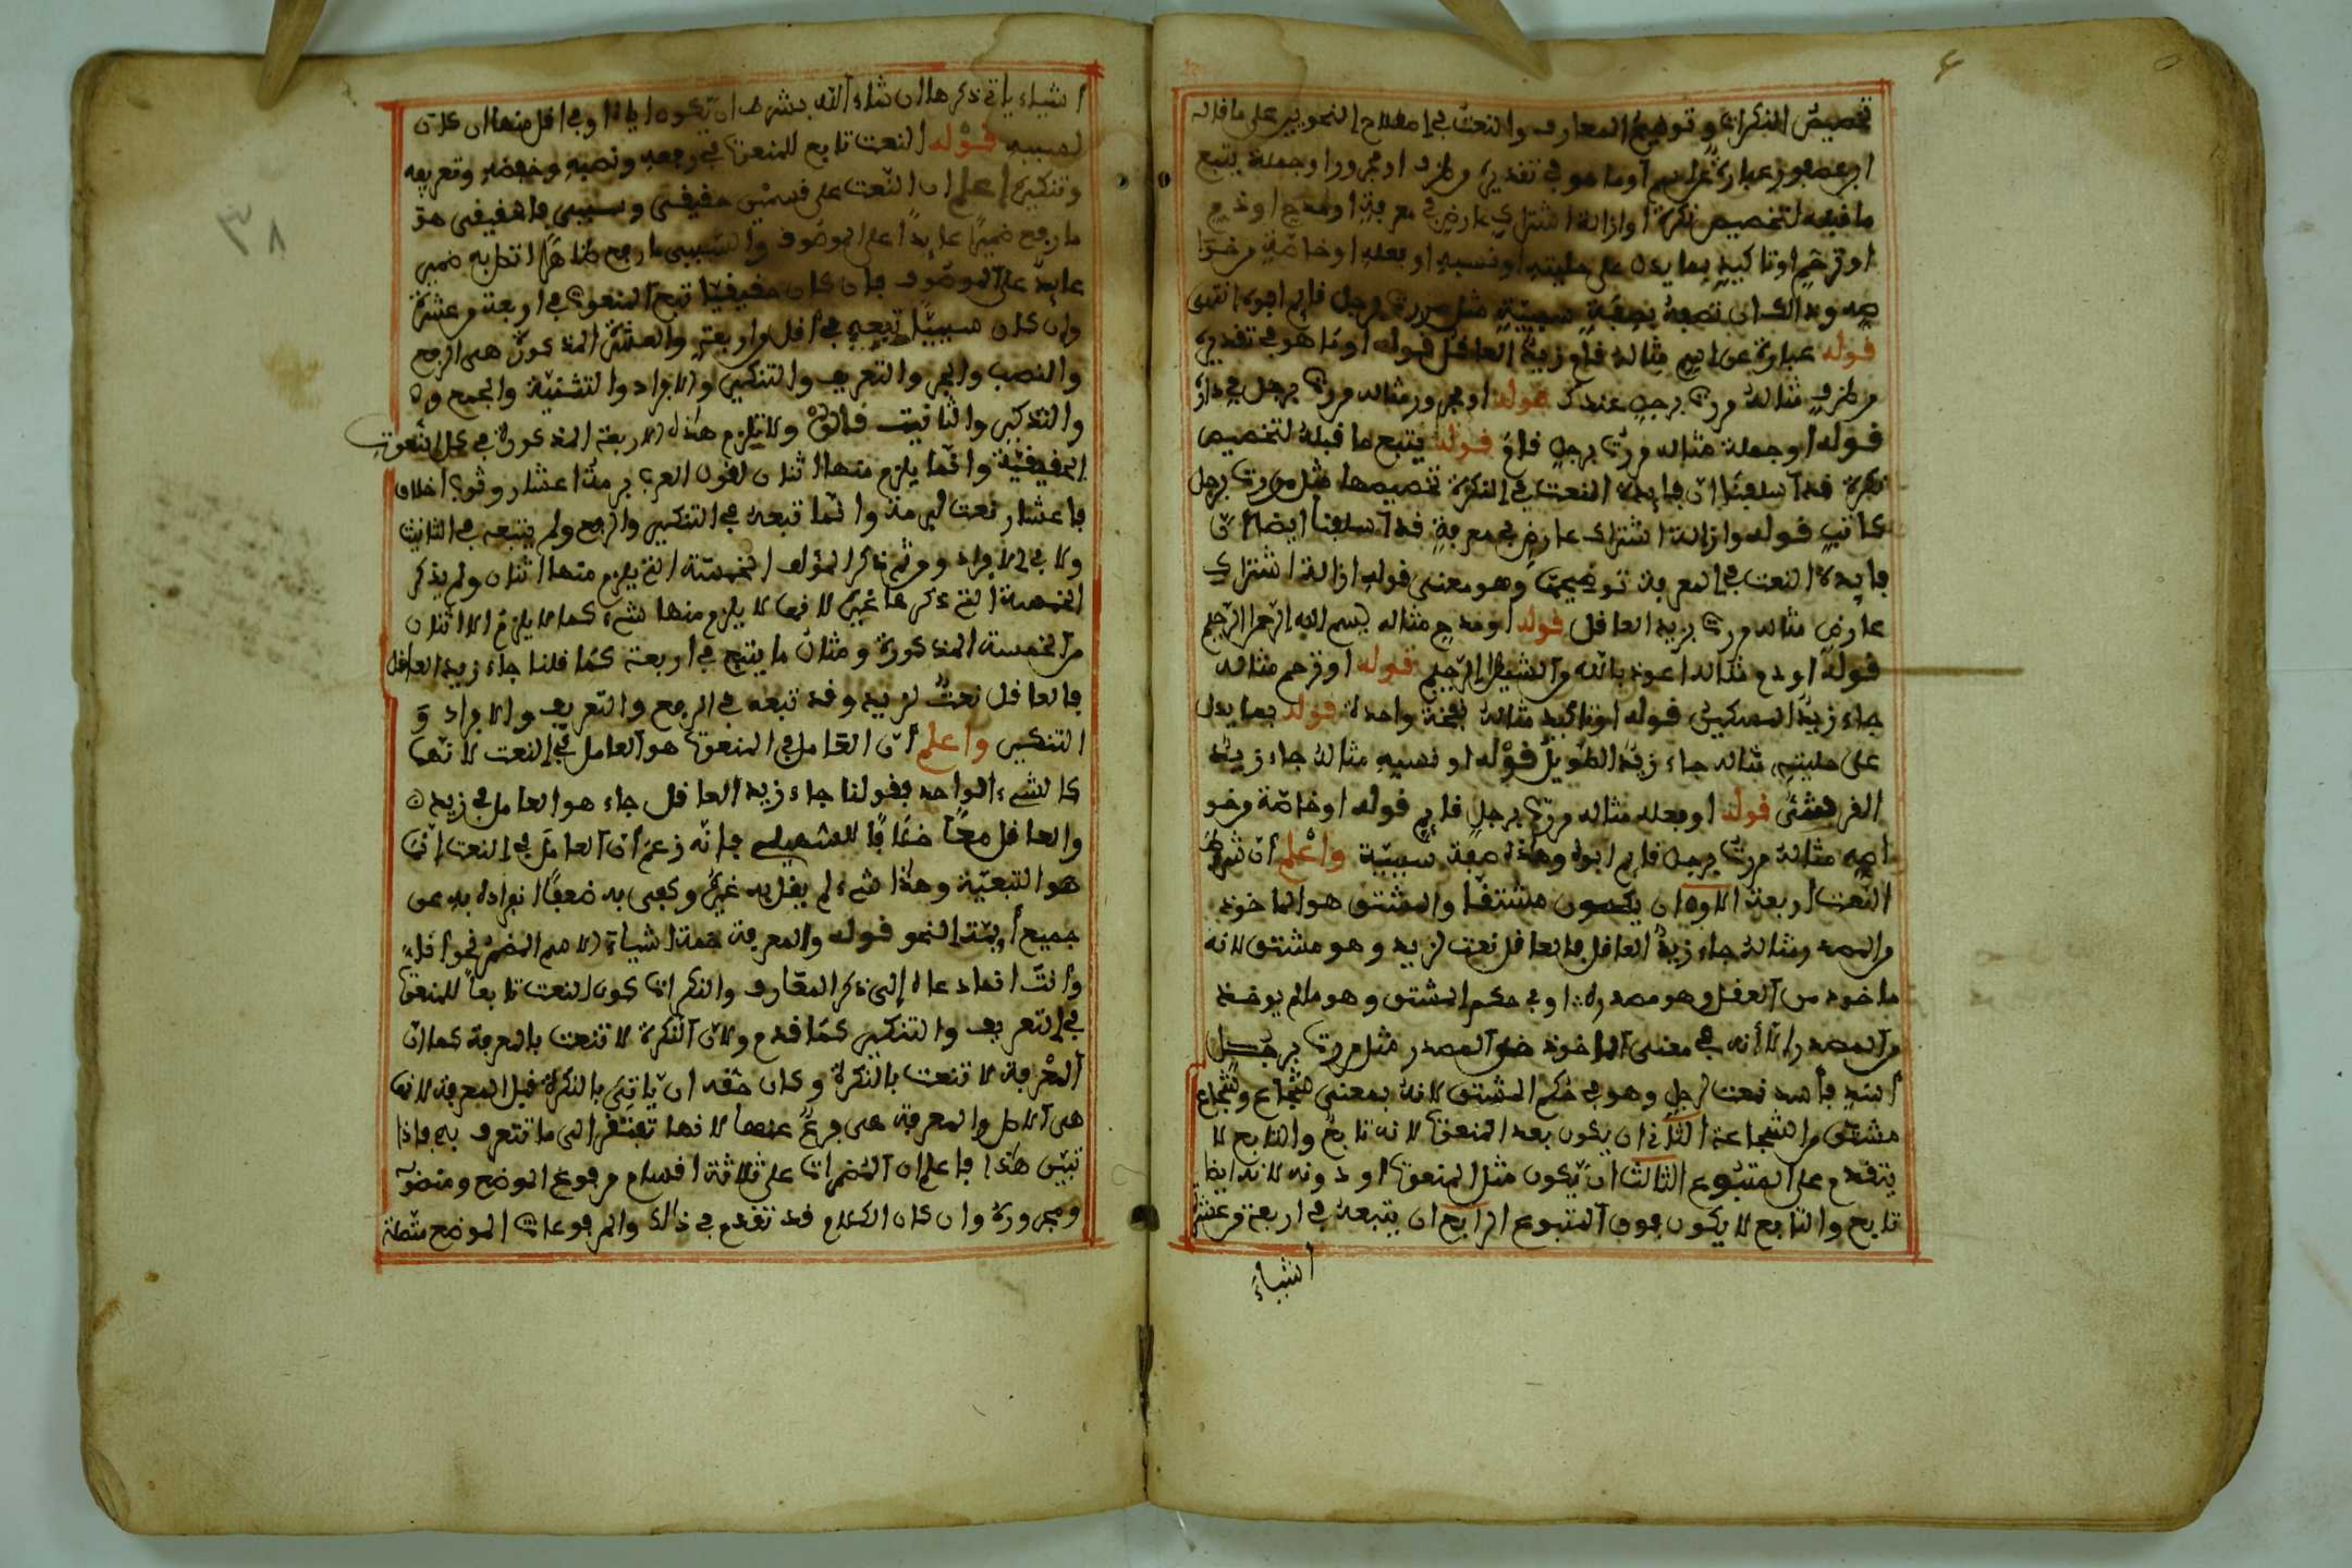 تخصيص النكرات وتوضيح المعارف والنعت في اصطلاح النحويين على ما قاله
ابن عصفور عبارة عن اسم أو ما هو في تقديره من ظرف او مجرور او جملة يتبع
ما قبله لتخصيص نكرة او ازالة اشتراك عارض في معرفة او مدح او ذم
او ترحم او تاكيد بما يدل على حليته او نسبه او فعله او خاصة من خوا
صه وذالك ان تصفه بصفة سببية مثل مررت برجل قايم ابوه انتهى
قوله عبارة عن اسم مثاله قام زيد العاقل قوله او ما هو في تقديره
من ظرف مثاله مررت برجل عندك قوله او مجرور مثاله مررت برجل في دار
قوله او جملة مثاله مررت برجل قام قوله يتبع ما قبله لتخصيص
نكرة قد أسلفنا ان فايدة النعت في النكرة تخصيصها مثل مررت برجل
كاتب قوله وازالة اشتراك عارض في معرفة قد أسلفنا ايضا أن
فايدة النعت في المعرفة توضيحها وهو معنى قوله ازالة اشتراك
عارض مثاله مررت بزيد العاقل قوله او مدح مثاله بسم الله الرحمن الرحيم
قوله او ذم مثاله اعوذ بالله من الشيطان الرجيم قوله او ترحم مثاله
جاء زيد المسكين قوله او تاكيد مثاله نفخة واحدة قوله بما يدل
على حليته مثاله جاء زيد الطويل قوله او نسبه مثاله جاء زيد
القرشي قوله او فعله مثاله مررت برجل قايم قوله او خاصة من خو
اصه مثاله مررت برجل قايم ابوه وهذه صفة سببية واعلم أن شرط
النعت اربعة الاول ان يكون مشتقا والمشتق هو الماخوذ
من المصدر مثاله جاء زيد العاقل فالعاقل نعت لزيد وهو مشتق لانه
ماخوذ من العقل وهو مصدر او في حكم المشتق وهو مالم يوخذ
من المصدر إلا أنه في معنى الماخوذ من المصدر مثل مررت برجل
أسد فأسد نعت لرجل وهو في حكم المشتق لانه بمعنى شجاع وشجاع
مشتق من الشجاعة الثاني ان يكون بعد المنعوت لانه تابع والتابع لا
يتقدم على المتبوع الثالث ان يكون مثل المنعوت او دونه لانه ايضا
تابع والتابع لا يكون فوق المتبوع الرابع ان يتبعه في اربعة من عشرة
اشياء
أشياء ياتي ذكرها ان شاء الله بشرط ان يكون اياه او في اقل منها ان كان
لسببه قوله النعت تابع للمنعوت في رفعه ونصبه وخفضه وتعريفه
وتنكيره اعلم ان النعت على قسمين حقيقي وسببي فالحقيقي هو
ما رفع ضميرا عايدا على الموصوف والسببي ما رفع ظاهرا اتصل به ضمير
عايد على الموصوف فان كان حقيقيا تبع المنعوت في اربعة من عشرة
وان كان سببيا تبعه في أقل من اربعة والعشرة المذكورة هي الرفع
والنصب والجر والتعريف والتنكير والافراد والتثنية والجمع و
والتذكير والتانيث قالوا ولا يلزم هذه الاربعة المذكورة في كل النعوت
الحقيقية وانما يلزم منها اثنان لقول العرب برمة اعشار وثوب اخلاق
فاعشار نعت لبرمة وانما تبعه في التنكير والرفع ولم يتبعه في التانيث
ولا في الافراد ومن ثم ذكر المؤلف الخمسة التي يلزم منها اثنان ولم يذكر
الخمسة التي ذكرها غيره لانها لا يلزم منها شيء كما لا يلزم الا اثنان
من الخمسة المذكورة ومثال ما يتبع في اربعة كما قلنا جاء زيد العاقل
فالعاقل نعت لزيد وقد تبعه في الرفع والتعريف والافراد و
التنكير واعلم أن العامل في المنعوت هو العامل في النعت لانهما
كالشيء الواحد فقولنا جاء زيد العاقل جاء هو العامل في زيد
والعاقل معا خلافا للسهيلي فانه زعم أن العامل في النعت إنما
هو التبعية وهذا شيء لم يقل به غيره وكفى به ضعفا انفراده به عن
جميع أيمة النحو قوله والمعرفة خمسة اشياء الاسم المضمر نحو انا
وأنت انما دعاه إلى ذكر المعارف والنكرات كون النعت تابعا للمنعوت
في التعريف والتنكير كما قدم ولان النكرة لا تنعت بالمعرفة كما ان
المعرفة لا تنعت بالنكرة وكان حقه ان ياتي بالنكرة قبل المعرفة لانها
هي الاصل والمعرفة هي فرع عنها لانها تفتقر الى ما تتعرف به فاذا
تبين هذا فاعلم ان المضمرات على ثلاثة اقسام مرفوع الموضع ومنصو
ومجرورة وان كان الكلام قد تقدم في ذالك والمرفوعات الموضع مثله
٣٨